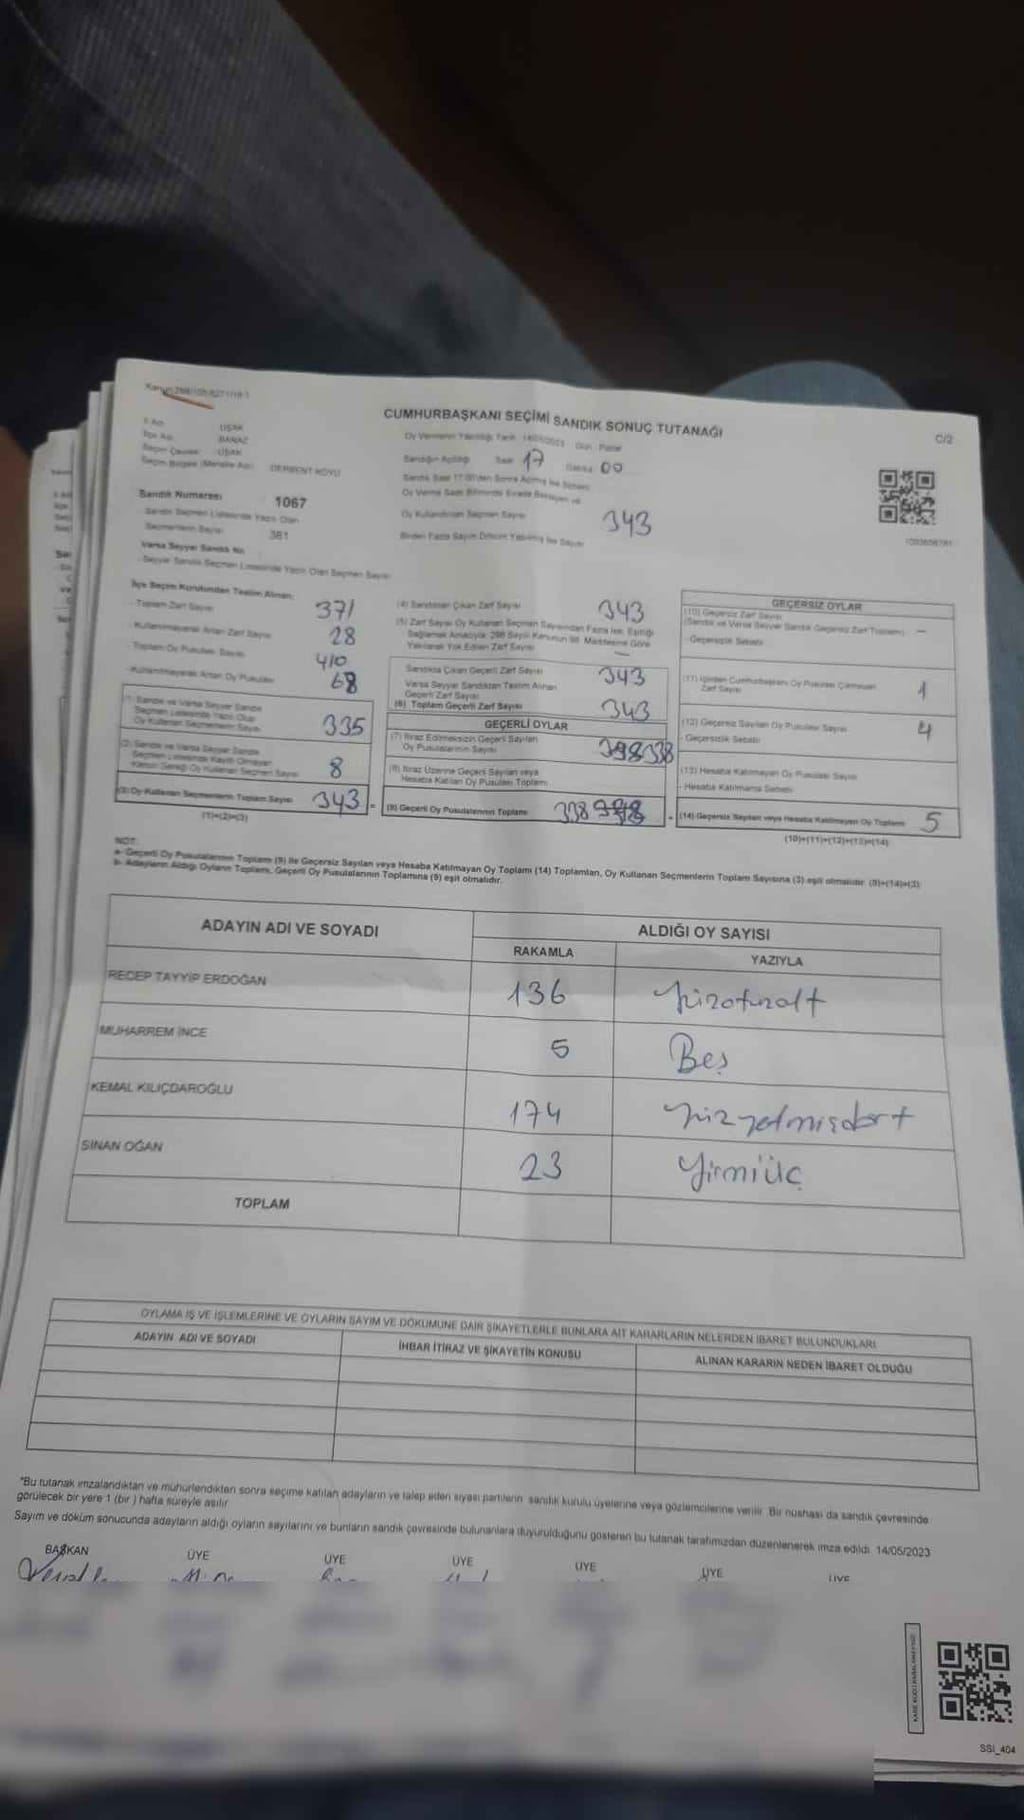 CUMHURBAŞKANI SEÇİMİ SANDIK SONUÇ TUTANAĞI
C/2
İl Adı UŞAK
İlçe Adı BANAZ
Seçim Çevresi UŞAK
Seçim Bölgesi (Mahalle Adı) DERBENT KÖYÜ
Sandık Numarası 1067
Sandık Seçmen Listesinde Yazılı Olan
Seçmenlerin Sayısı 381
Varsa Seyyar Sandık No
Seyyar Sandık Seçmen Listesinde Yazılı Olan Seçmen Sayısı
Oy Vermenin Yapıldığı Tarih 14/05/2023 Gün Pazar
Sandığın Açıldığı Saat 17 Dakika 00
Oy Kullandıran Seçmen Sayısı 343
İlçe Seçim Kurulundan Teslim Alınan:
Toplam Zarf Sayısı 371
Kullanılmayarak Artan Zarf Sayısı 28
Toplam Oy Pusulası Sayısı 410
Kullanılmayarak Artan Oy Pusulası 68
(1) Sandık ve Varsa Seyyar Sandık
Seçmen Listesinde Yazılı Olup
Oy Kullanan Seçmenlerin Sayısı 335
(2) Sandık ve Varsa Seyyar Sandık
Seçmen Listesinde Kayıtlı Olmayan
Kanun Gereği Oy Kullanan Seçmen Sayısı 8
(3) Oy Kullanan Seçmenlerin Toplam Sayısı 343
(1)+(2)=(3)
(4) Sandıktan Çıkan Zarf Sayısı 343
(5) Zarf Sayısı Oy Kullanan Seçmen Sayısından Fazla ise, Eşitliği
Sağlamak Amacıyla 298 Sayılı Kanunun 98. Maddesine Göre
Yakılarak Yok Edilen Zarf Sayısı —
Sandıkta Çıkan Geçerli Zarf Sayısı 343
Varsa Seyyar Sandıktan Teslim Alınan
Geçerli Zarf Sayısı
(6) Toplam Geçerli Zarf Sayısı 343
GEÇERLİ OYLAR
(7) İtiraz Edilmeksizin Geçerli Sayılan
Oy Pusulalarının Sayısı 338
(8) İtiraz Üzerine Geçerli Sayılan veya
Hesaba Katılan Oy Pusulası Toplamı
(9) Geçerli Oy Pusulalarının Toplamı 338
GEÇERSİZ OYLAR
(10) Geçersiz Zarf Sayısı
(Sandık ve Varsa Seyyar Sandık Geçersiz Zarf Toplamı) —
Geçersizlik Sebebi
(11) İçinden Cumhurbaşkanı Oy Pusulası Çıkmayan
Zarf Sayısı 1
(12) Geçersiz Sayılan Oy Pusulası Sayısı 4
Geçersizlik Sebebi
(13) Hesaba Katılmayan Oy Pusulası Sayısı
Hesaba Katılmama Sebebi
(14) Geçersiz Sayılan veya Hesaba Katılmayan Oy Toplamı 5
(10)+(11)+(12)+(13)=(14)
NOT:
a- Geçerli Oy Pusulalarının Toplamı (9) ile Geçersiz Sayılan veya Hesaba Katılmayan Oy Toplamı (14) Toplamları, Oy Kullanan Seçmenlerin Toplam Sayısına (3) eşit olmalıdır. (9)+(14)=(3)
b- Adayların Aldığı Oyların Toplamı, Geçerli Oy Pusulalarının Toplamına (9) eşit olmalıdır.
ADAYIN ADI VE SOYADI ALDIĞI OY SAYISI
RAKAMLA YAZIYLA
RECEP TAYYİP ERDOĞAN 136 Yüzotuzaltı
MUHARREM İNCE 5 Beş
KEMAL KILIÇDAROĞLU 174 Yüzyetmişdört
SİNAN OĞAN 23 Yirmiüç
TOPLAM
OYLAMA İŞ VE İŞLEMLERİNE VE OYLARIN SAYIM VE DÖKÜMÜNE DAİR ŞİKAYETLERLE BUNLARA AİT KARARLARIN NELERDEN İBARET BULUNDUKLARI
ADAYIN ADI VE SOYADI İHBAR İTİRAZ VE ŞİKAYETİN KONUSU ALINAN KARARIN NEDEN İBARET OLDUĞU
*Bu tutanak imzalandıktan ve mühürlendikten sonra seçime katılan adayların ve talep eden siyasi partilerin sandık kurulu üyelerine veya gözlemcilerine verilir. Bir nüshası da sandık çevresinde
görülecek bir yere 1 (bir) hafta süreyle asılır
Sayım ve döküm sonucunda adayların aldığı oyların sayılarını ve bunların sandık çevresinde bulunanlara duyurulduğunu gösteren bu tutanak tarafımızdan düzenlenerek imza edildi. 14/05/2023
BAŞKAN ÜYE ÜYE ÜYE ÜYE ÜYE ÜYE
SSI_404